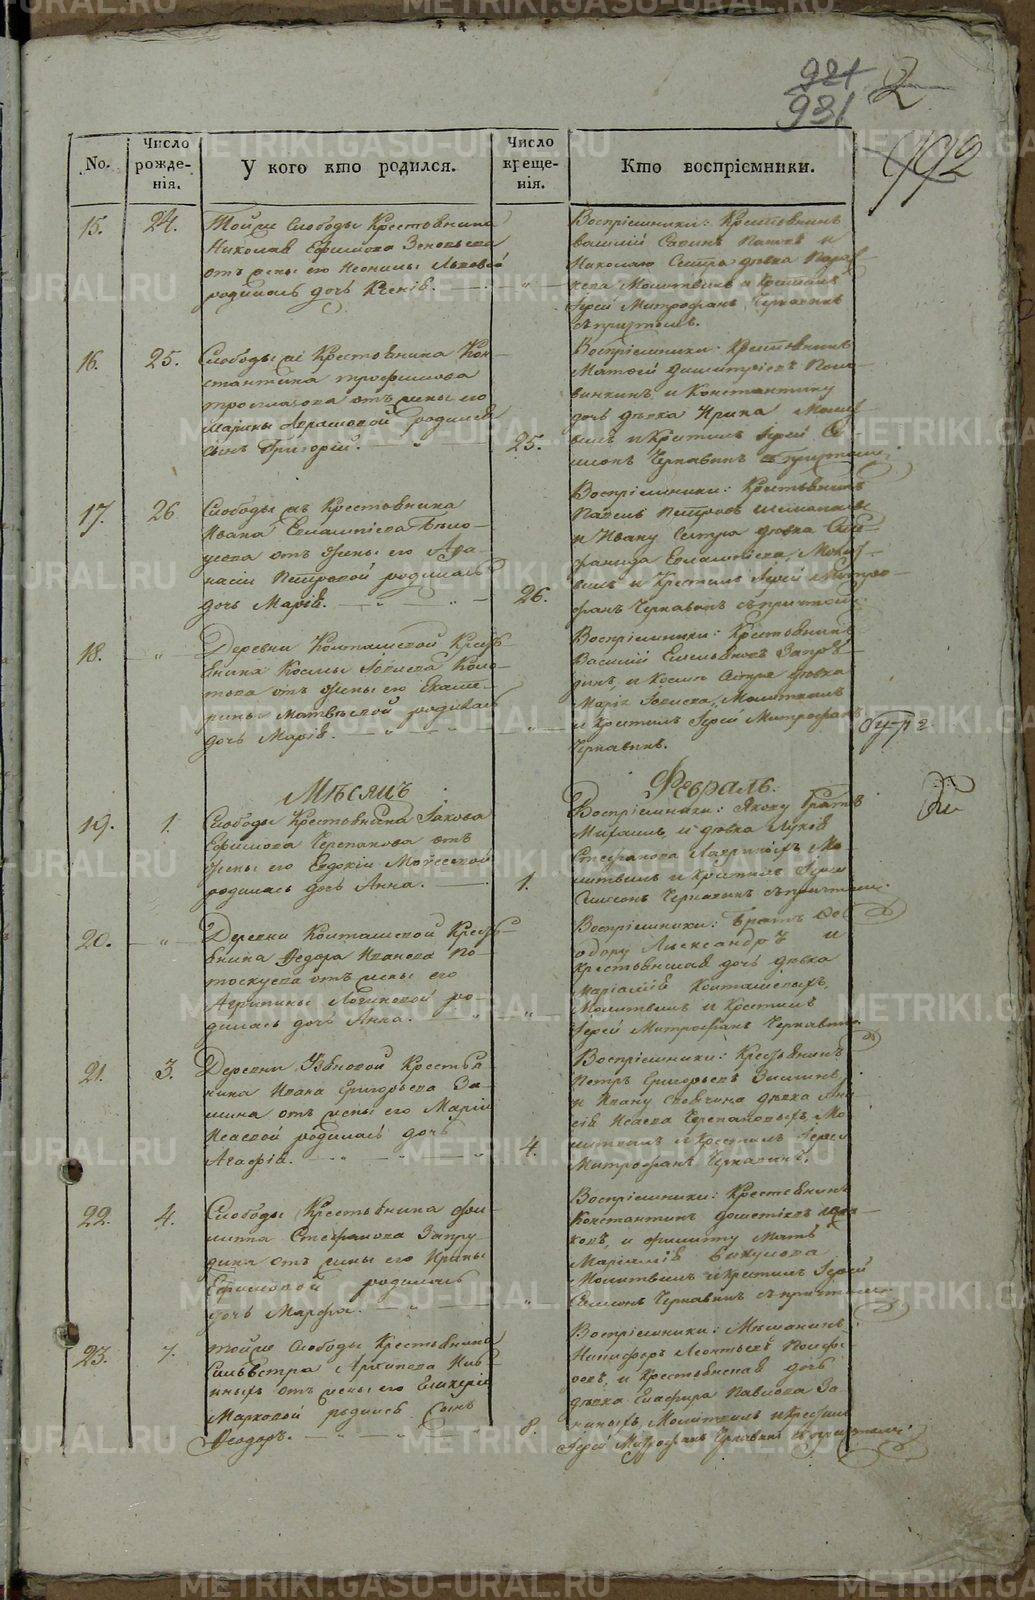 921
931
2
992
No.
Число рожде-нія.
У кого кто родился.
Число креще-нія.
Кто воспріемники.
15.
24.
Тойже Слободы Крестьянина
Николая Ефимова Зеновьева
отъ жены его Неонилы Львовой
родилась дочь Ксенія.
„
Воспріемники: Крестьянинъ
Василій Савинъ и
Николаю Сестра дѣвка Парас-
кева Молитвилъ и Крестилъ
Іерей Митрофанъ Чернавинъ
съ причтомъ.
16.
25.
Слободы сей Крестьянина Кон-
стантина Трофимова
отъ жены его
Марины Абрамовой родился
сынъ Григорій.
25.
Воспріемники: Крестьянинъ
Матвей Димитріевъ
и Константину
дочь дѣвка Ирина Молит-
вилъ и Крестилъ Іерей Си-
меонъ Чернавинъ съ причтомъ.
17.
26
Слободы сей Крестьянина
Ивана Евлампіева
отъ жены его Афа-
насіи Петровой родилась
дочь Марія.
26.
Воспріемники: Крестьянинъ
Павелъ Петровъ
и Ивану Сестра дѣвка Сте-
фанида Евлампіева, Молит-
вилъ и Крестилъ Іерей Митро-
фанъ Чернавинъ съ причтомъ.
18.
„
Деревни Колташевой Кресть-
янина Космы Іовлева Коло-
това отъ жены его Екате-
рины Матвѣевой родилась
дочь Марія.
„
Воспріемники: Крестьянинъ
Василій Емельяновъ Запру-
динъ, и Космы Сестра дѣвка
Марія Іовлева, Молитвилъ
и Крестилъ Іерей Митрофанъ
Чернавинъ.
Мѣсяцъ
Февраль.
19.
1.
Слободы Крестьянина Іакова
Ефимова Черепанова отъ
жены его Евдокіи Мойсеевой
родилась дочь Анна.
1.
Воспріемники: Якову братъ
Михаилъ, и дѣвка Лукія
Стефанова Мо-
литвилъ и Крестилъ Іерей
Симеонъ Чернавинъ съ причтомъ.
20.
„
Деревни Колташевой Кресть-
янина Ѳедора Иванова По-
тоскуева отъ жены его
Агрипины Логиновой ро-
дилась дочь Анна.
„
Воспріемники: братъ Ѳе-
одору Александръ и
крестьянская дочь дѣвка
Маріамія Колташевыхъ,
Молитвилъ и Крестилъ
Іерей Митрофанъ Чернавинъ.
21.
3.
Деревни Крестья-
нина Ивана Григорьева За-
мина отъ жены его Маріи
Исаевой родилась дочь
Агафія.
4.
Воспріемники: Крестьянинъ
Петръ Григорьевъ
и Ивану Своячина дѣвка Ани-
сія Исаева Черепановыхъ, Мо-
литвилъ и Крестилъ Іерей
Митрофанъ Чернавинъ.
22.
4.
Слободы Крестьянина Фи-
липа Стефанова Запру-
дина отъ жены его Ирины
Ефимовой родилась
дочь Марфа.
„
Воспріемники: Крестьянинъ
Константинъ
и Филипу Мать
Маріамія Викулова
Молитвилъ и Крестилъ Іерей
Симеонъ Чернавинъ съ причтомъ.
23.
7.
Тойже Слободы Крестьянина
Сильвестра Архипова
отъ жены его Гликеріи
Марковой родился Сынъ
Ѳеодоръ.
8.
Воспріемники: Мѣщанинъ
Никифоръ Леонтьевъ
и Крестьянская дочь
дѣвка Глафира Павлова
Молитвилъ и Крестилъ
Іерей Митрофанъ Чернавинъ съ причтомъ.
METRIKI.GASO-URAL.RU